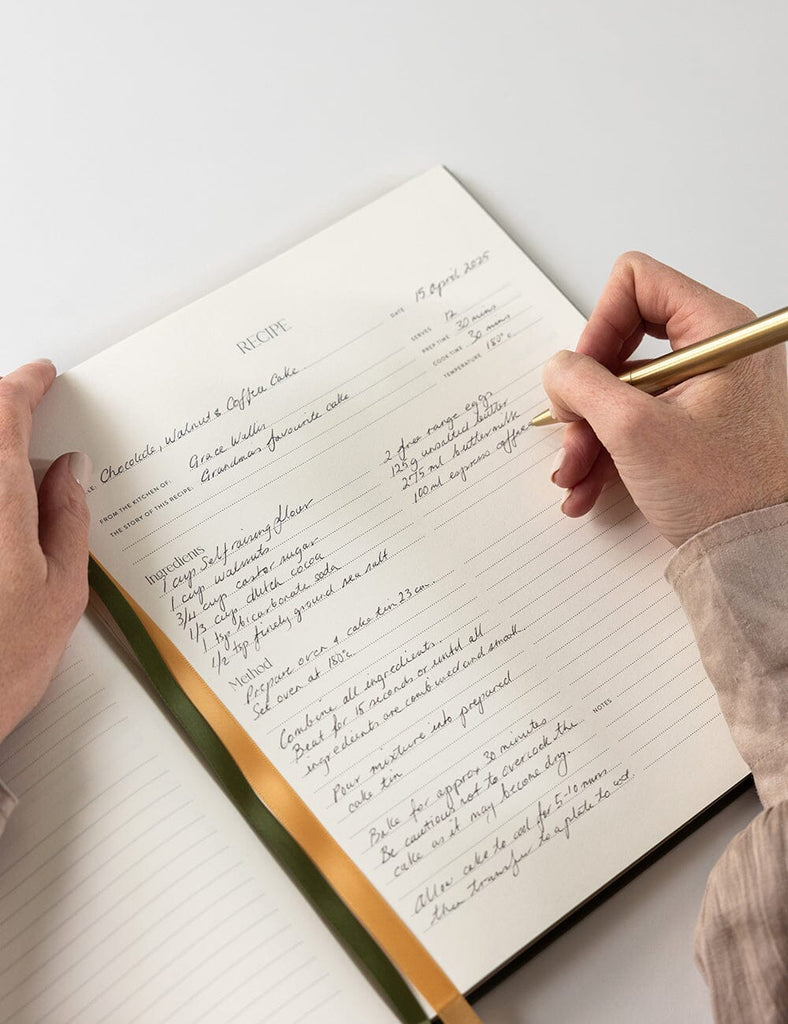 RECIPE
DATE 15 April 2025
SERVES 12
PREP TIME 30 mins
COOK TIME 30 mins
TEMPERATURE 180°c
Chocolate, Walnut & Coffee Cake
FROM THE KITCHEN OF: Grace Willis
THE STORY OF THIS RECIPE: Grandmas favourite cake
Ingredients
1 cup Self raising flour
1 cup walnuts
3/4 cup castor sugar
1/3 cup dutch cocoa
1 tsp bicarbonate soda
1/2 tsp finely ground sea salt
2 free range eggs
125g unsalted butter
275 ml buttermilk
100ml espresso coffee
Method
Prepare oven & cake tin 23 cm.
Set oven at 180°c.
Combine all ingredients.
Beat for 15 seconds or until all
ingredients are combined and smooth.
Pour mixture into prepared
cake tin
Bake for approx 30 minutes
Be cautious not to overcook the
cake as it may become dry.
Allow cake to cool for 5-10 mins
then transfer to a plate to
NOTES